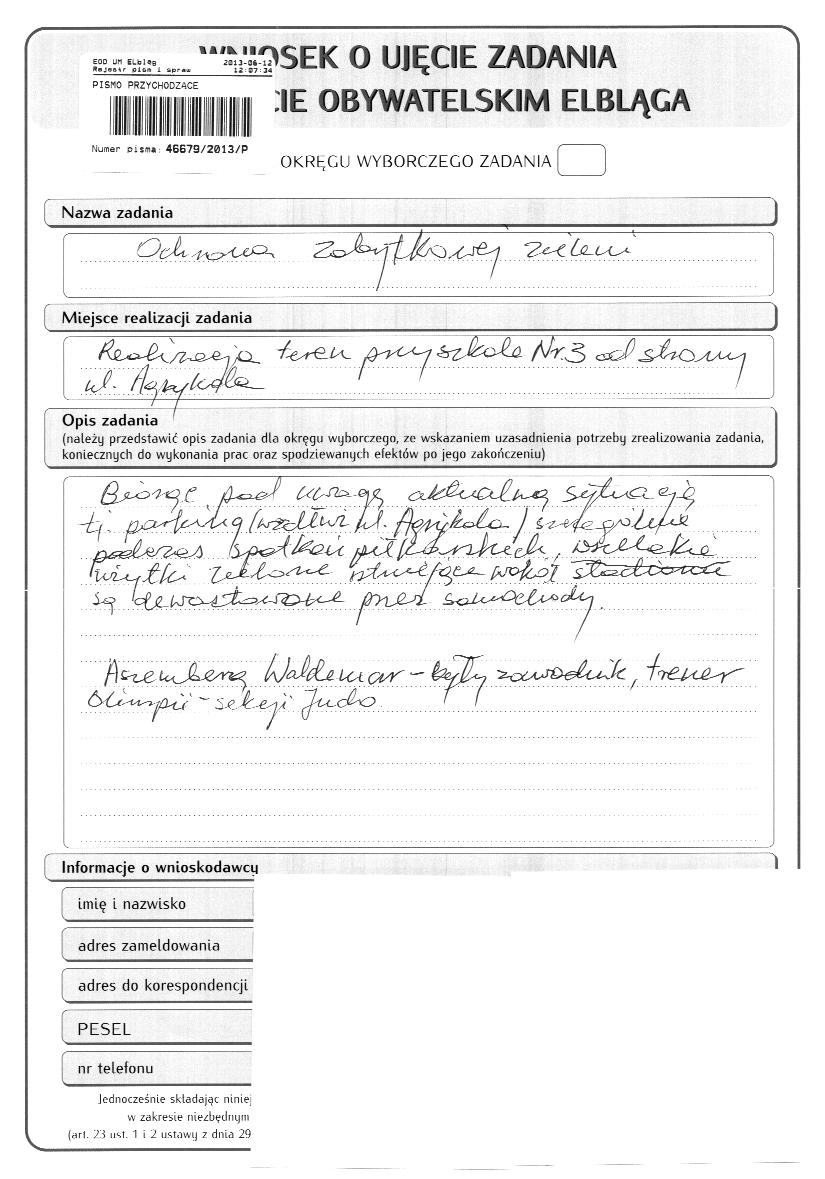 EOD UM Elbląg 2013-06-12
Rejestr pism i spraw 12:07:34
PISMO PRZYCHODZĄCE
Numer pisma: 46679/2013/P
WNIOSEK O UJĘCIE ZADANIA
CIE OBYWATELSKIM ELBLĄGA
OKRĘGU WYBORCZEGO ZADANIA
Nazwa zadania
Ochrona zabytkowej zieleni
Miejsce realizacji zadania
Realizacja teren przy szkole Nr.3 od strony
ul. Agrykola
Opis zadania
(należy przedstawić opis zadania dla okręgu wyborczego, ze wskazaniem uzasadnienia potrzeby zrealizowania zadania,
koniecznych do wykonania prac oraz spodziewanych efektów po jego zakończeniu)
Biorąc pod uwagę aktualną sytuację
tj. parking (wzdłuż ul. Agrykola) szczególnie
podczas spotkań piłkarskich, wszelakie
użytki zielone istniejące wokół stadionu
są dewastowane przez samochody.
Aszemberg Waldemar - były zawodnik, trener
Olimpii - sekcji Judo
Informacje o wnioskodawcy
imię i nazwisko
adres zameldowania
adres do korespondencji
PESEL
nr telefonu
Jednocześnie składając niniej
w zakresie niezbędnym
(art. 23 ust. 1 i 2 ustawy z dnia 29